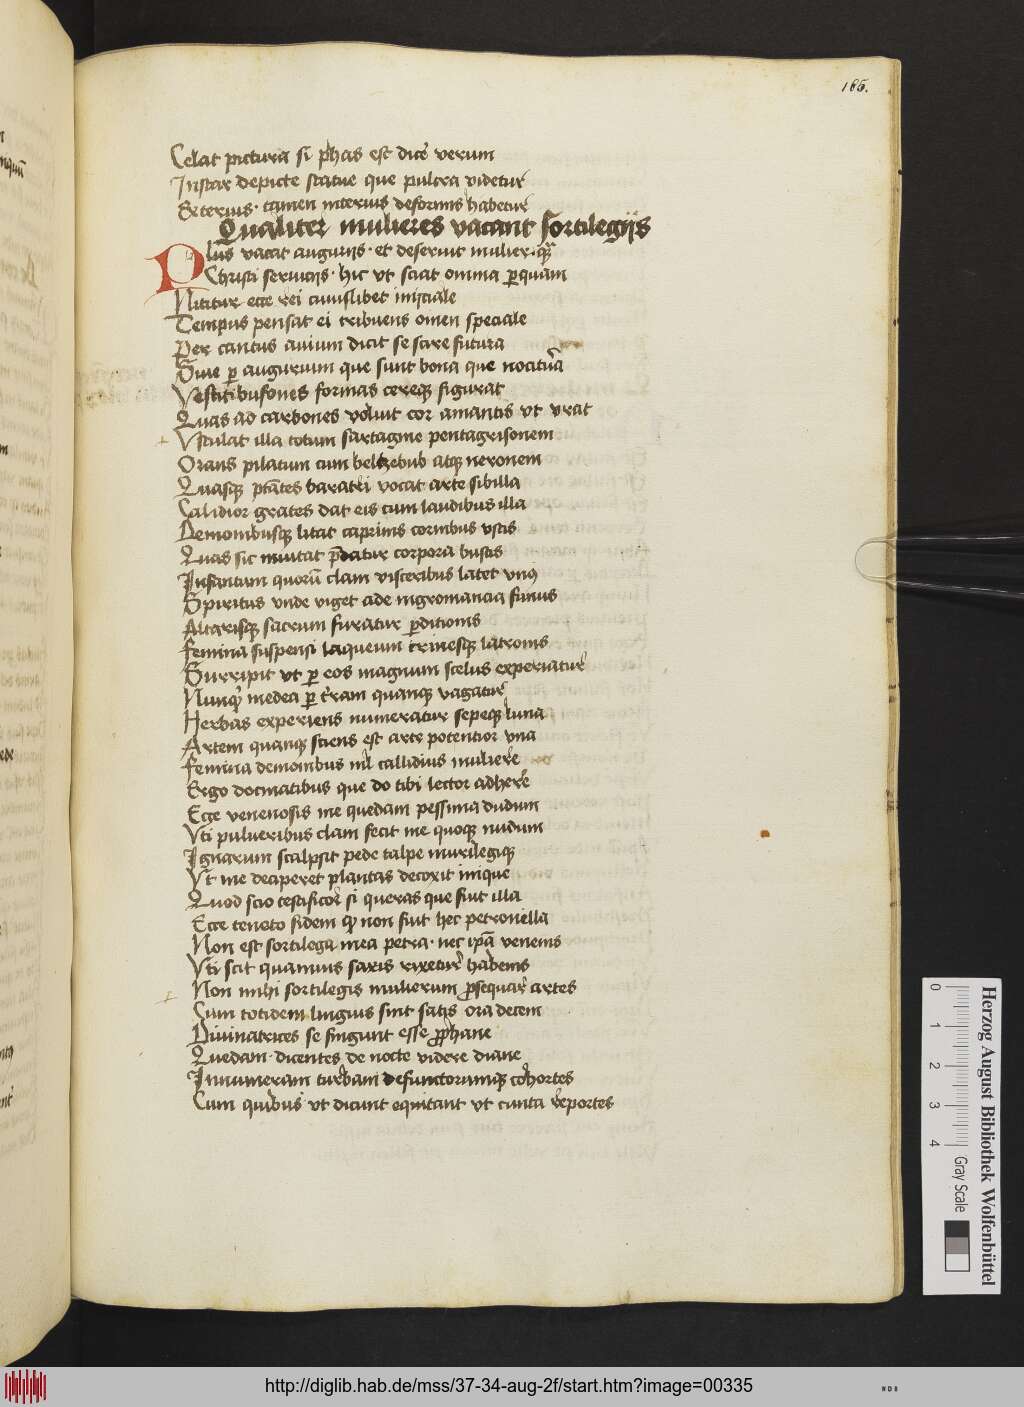 185.
Celat pictura si phas est dice verum
Instar depicte statue que pulcra videtur
Exterius tamen interius deformis habetur
Qualiter mulieres vacant sortilegijs
Plus vacat augurijs et deservit mulier qua
Christi servicijs hic vt sciat omnia perquam
Nititur ecce rei cuiuslibet iniciale
Tempus pensat ei tribuens omen speciale
Per cantus avium dicit se scire futura
Sive per augurium que sunt bona que nocitura
Vestit bufones formas cereque figurat
Quas ad carbones voluit cor amantis vt vrat
Vstulat illa totum sartagine pentagrisonem
Orans pilatum cum beltzebub atque neronem
Quasque ptates baratri vocat arte sibilla
Calidior grates dat eis cum laudibus illa
Demonibusque litat caprinis cornibus vstis
Quas sic invitat predatur corpora bustis
Infantum quorum clam visceribus latet vnus
Spiritus vnde viget ade nigromancia funus
Altarisque sacrum furatur perditionis
Femina suspensi laqueum crinesque latronis
Surripit vt per eos magnum scelus experiatur
Nunquam medea per terram quamque vagatur
Herbas experiens numeratur sepeque luna
Artem quamque sciens est arte potentior vna
Femina demonibus nil callidius muliere
Ergo docmatibus que do tibi lector adhere
Ecce venenosis me quedam pessima dudum
Vti pulveribus clam fecit me quoque nudum
Ignarum scalpsit pede talpe murilegique
Vt me deciperet plantas decoxit inique
Quod scio testificor si queras que fiut illa
Ecce teneto fidem quod non fiut hec petronilla
Non est sortilega mea petra nec ipsa venenis
Vti scit quamvis saxis rixetur habenis
Non mihi sortilegis mulierum prosequar artes
Cum totidem linguis sint satis ora decem
Divinatrices se fingunt esse prophane
Quedam dicentes de nocte videre diane
Innumeram turbam defunctorumque cohortes
Cum quibus vt dicunt equitant vt cunta reportes
Herzog August Bibliothek Wolfenbüttel
0 1 2 3 4
Gray Scale
http://diglib.hab.de/mss/37-34-aug-2f/start.htm?image=00335